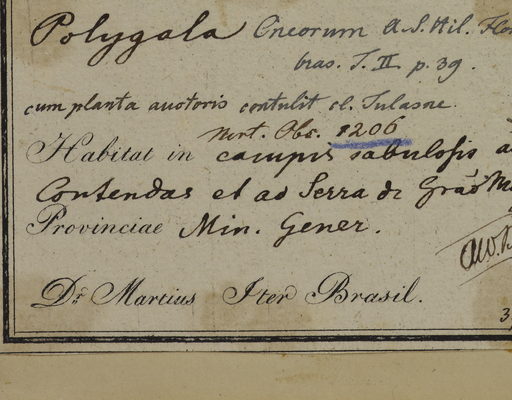 Polygala Oneorum A. S. Hil. Flor
bras. T. II. p. 39.
cum planta auctoris contulit cl. Tulasne.
Hert. Obs. 1206
Habitat in campis sabulosis a
Contendas et ad Serra de Grão M
Provinciae Min. Gener.
Dr. Martius Iter Brasil.
3